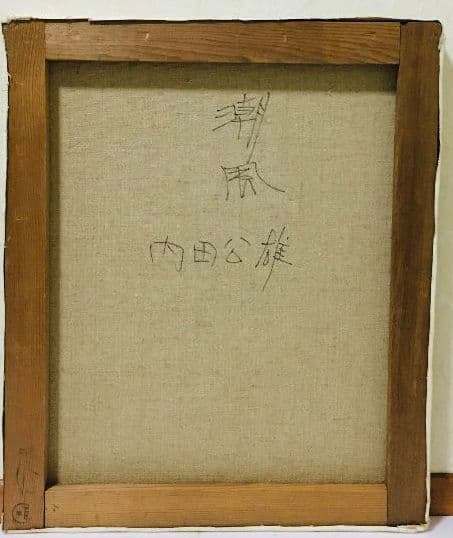 潮
風
内田公雄